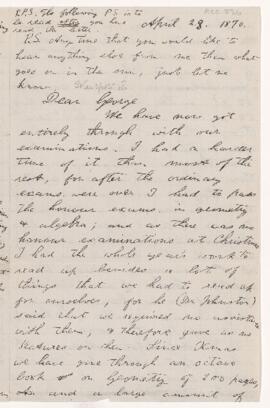 R.P.S. The following P.S. is to
be read after you have
read the letter
April 28, 1870.
P.S. Any time that you would like to
hear anything else from me than what
goes on in the son, just let me
know.
Dear George
We have now got
entirely through with our
examinations. I had a harder
time of it than most of the
rest, for after the ordinary
exams. were over I had to pass
the honour exams. in geometry
& algebra; and as there was no
honour examinations at Christmas
I had the whole year's work to
read up besides a lot of
things that we had to read up
for ourselves, for he (Dr Johnston)
said that we required no assistance
with them, & therefore gave us no
lectures on them. Since Xmas
we have gone through an octavo
book on Geometry of 200 pages,
and a large amount of